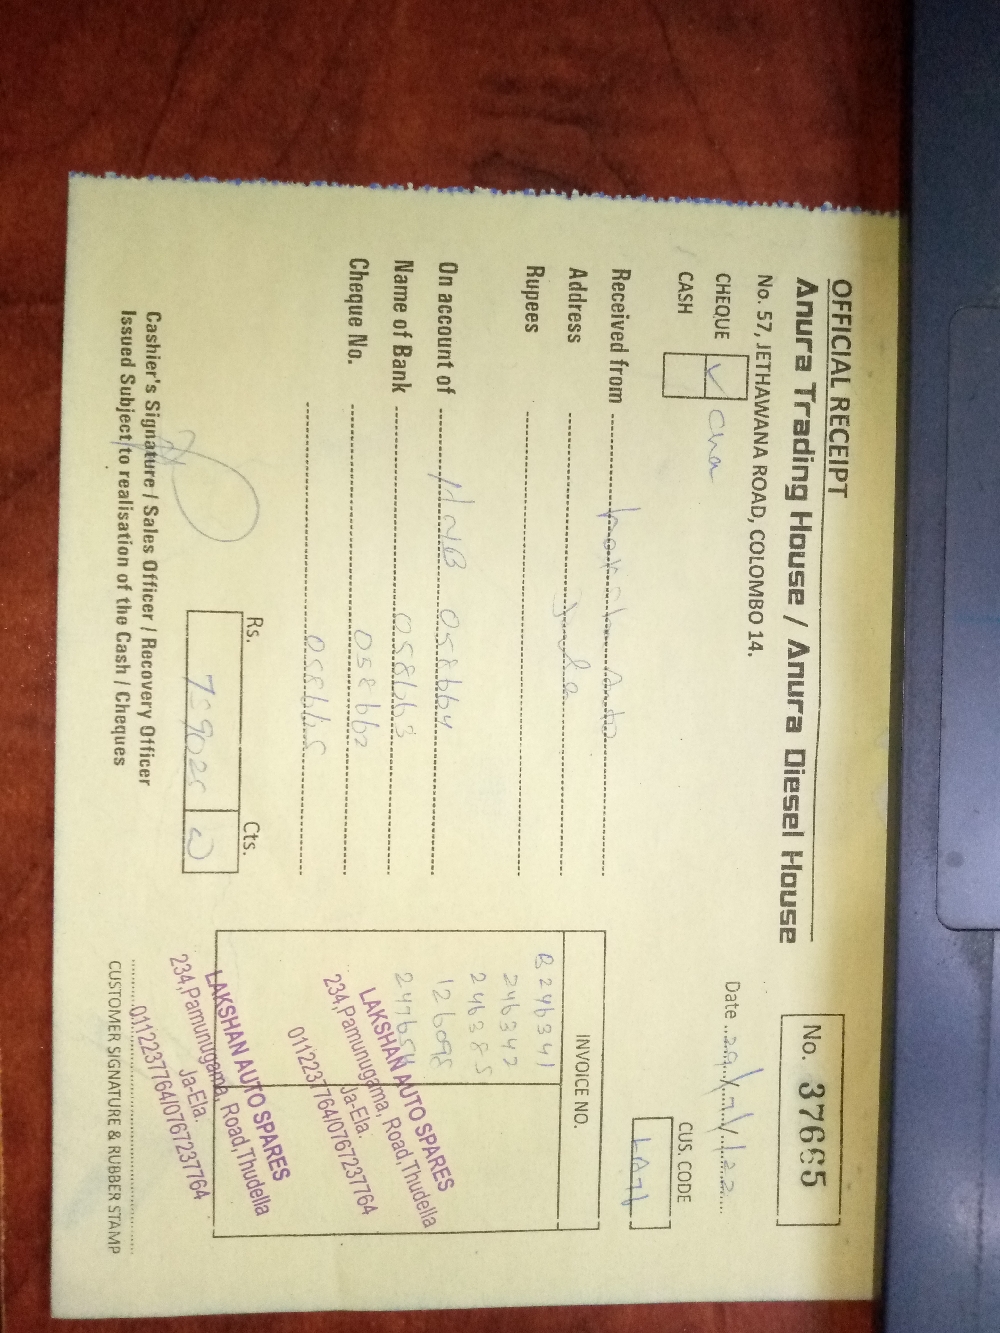 OFFICIAL RECEIPT
Anura Trading House / Anura Diesel House
No. 57, JETHAWANA ROAD, COLOMBO 14.
No. 37665
Date 29/7/22
CHEQUE
CASH
CUS. CODE
Received from
Address
Rupees
On account of HNB 058664
Name of Bank 058663
Cheque No. 058662
058665
INVOICE NO.
246341
246342
246385
LAKSHAN AUTO SPARES
234,Pamunugama, Road,Thudella
Ja-Ela.
0112237764/0767237764
Rs. Cts.
759025
LAKSHAN AUTO SPARES
234,Pamunugama, Road,Thudella
Ja-Ela.
0112237764/0767237764
Cashier's Signature / Sales Officer / Recovery Officer
Issued Subject to realisation of the Cash / Cheques
CUSTOMER SIGNATURE & RUBBER STAMP